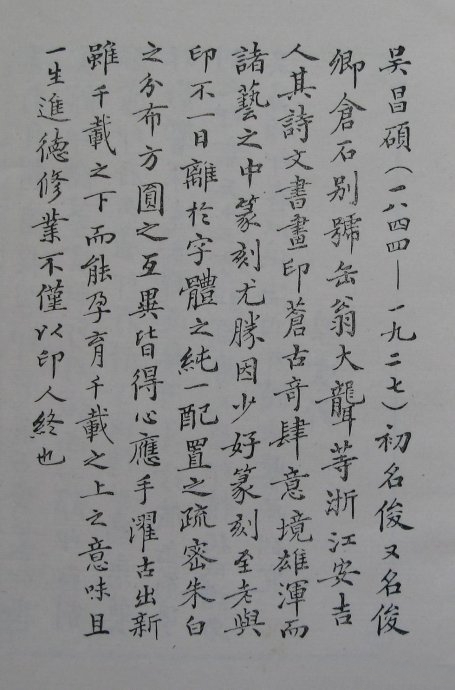 吴昌碩（一八四四—一九二七）初名俊又名俊
卿倉石別號缶翁大聾等浙江安吉
人其詩文書畫印蒼古奇肆意境雄渾而
諸藝之中篆刻尤勝因少好篆刻至老與
印不一日離於字體之純一配置之疏密朱白
之分布方圓之互異皆得心應手濯古出新
雖千載之下而能孕育千載之上之意味且
一生進德修業不僅以印人終也